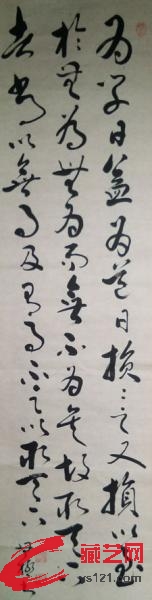 為學日益為道日損〻之又損以至
於無為無為而無不為矣故取天下
者常以無事及有事不足以取天下
藏艺网
ys121.com